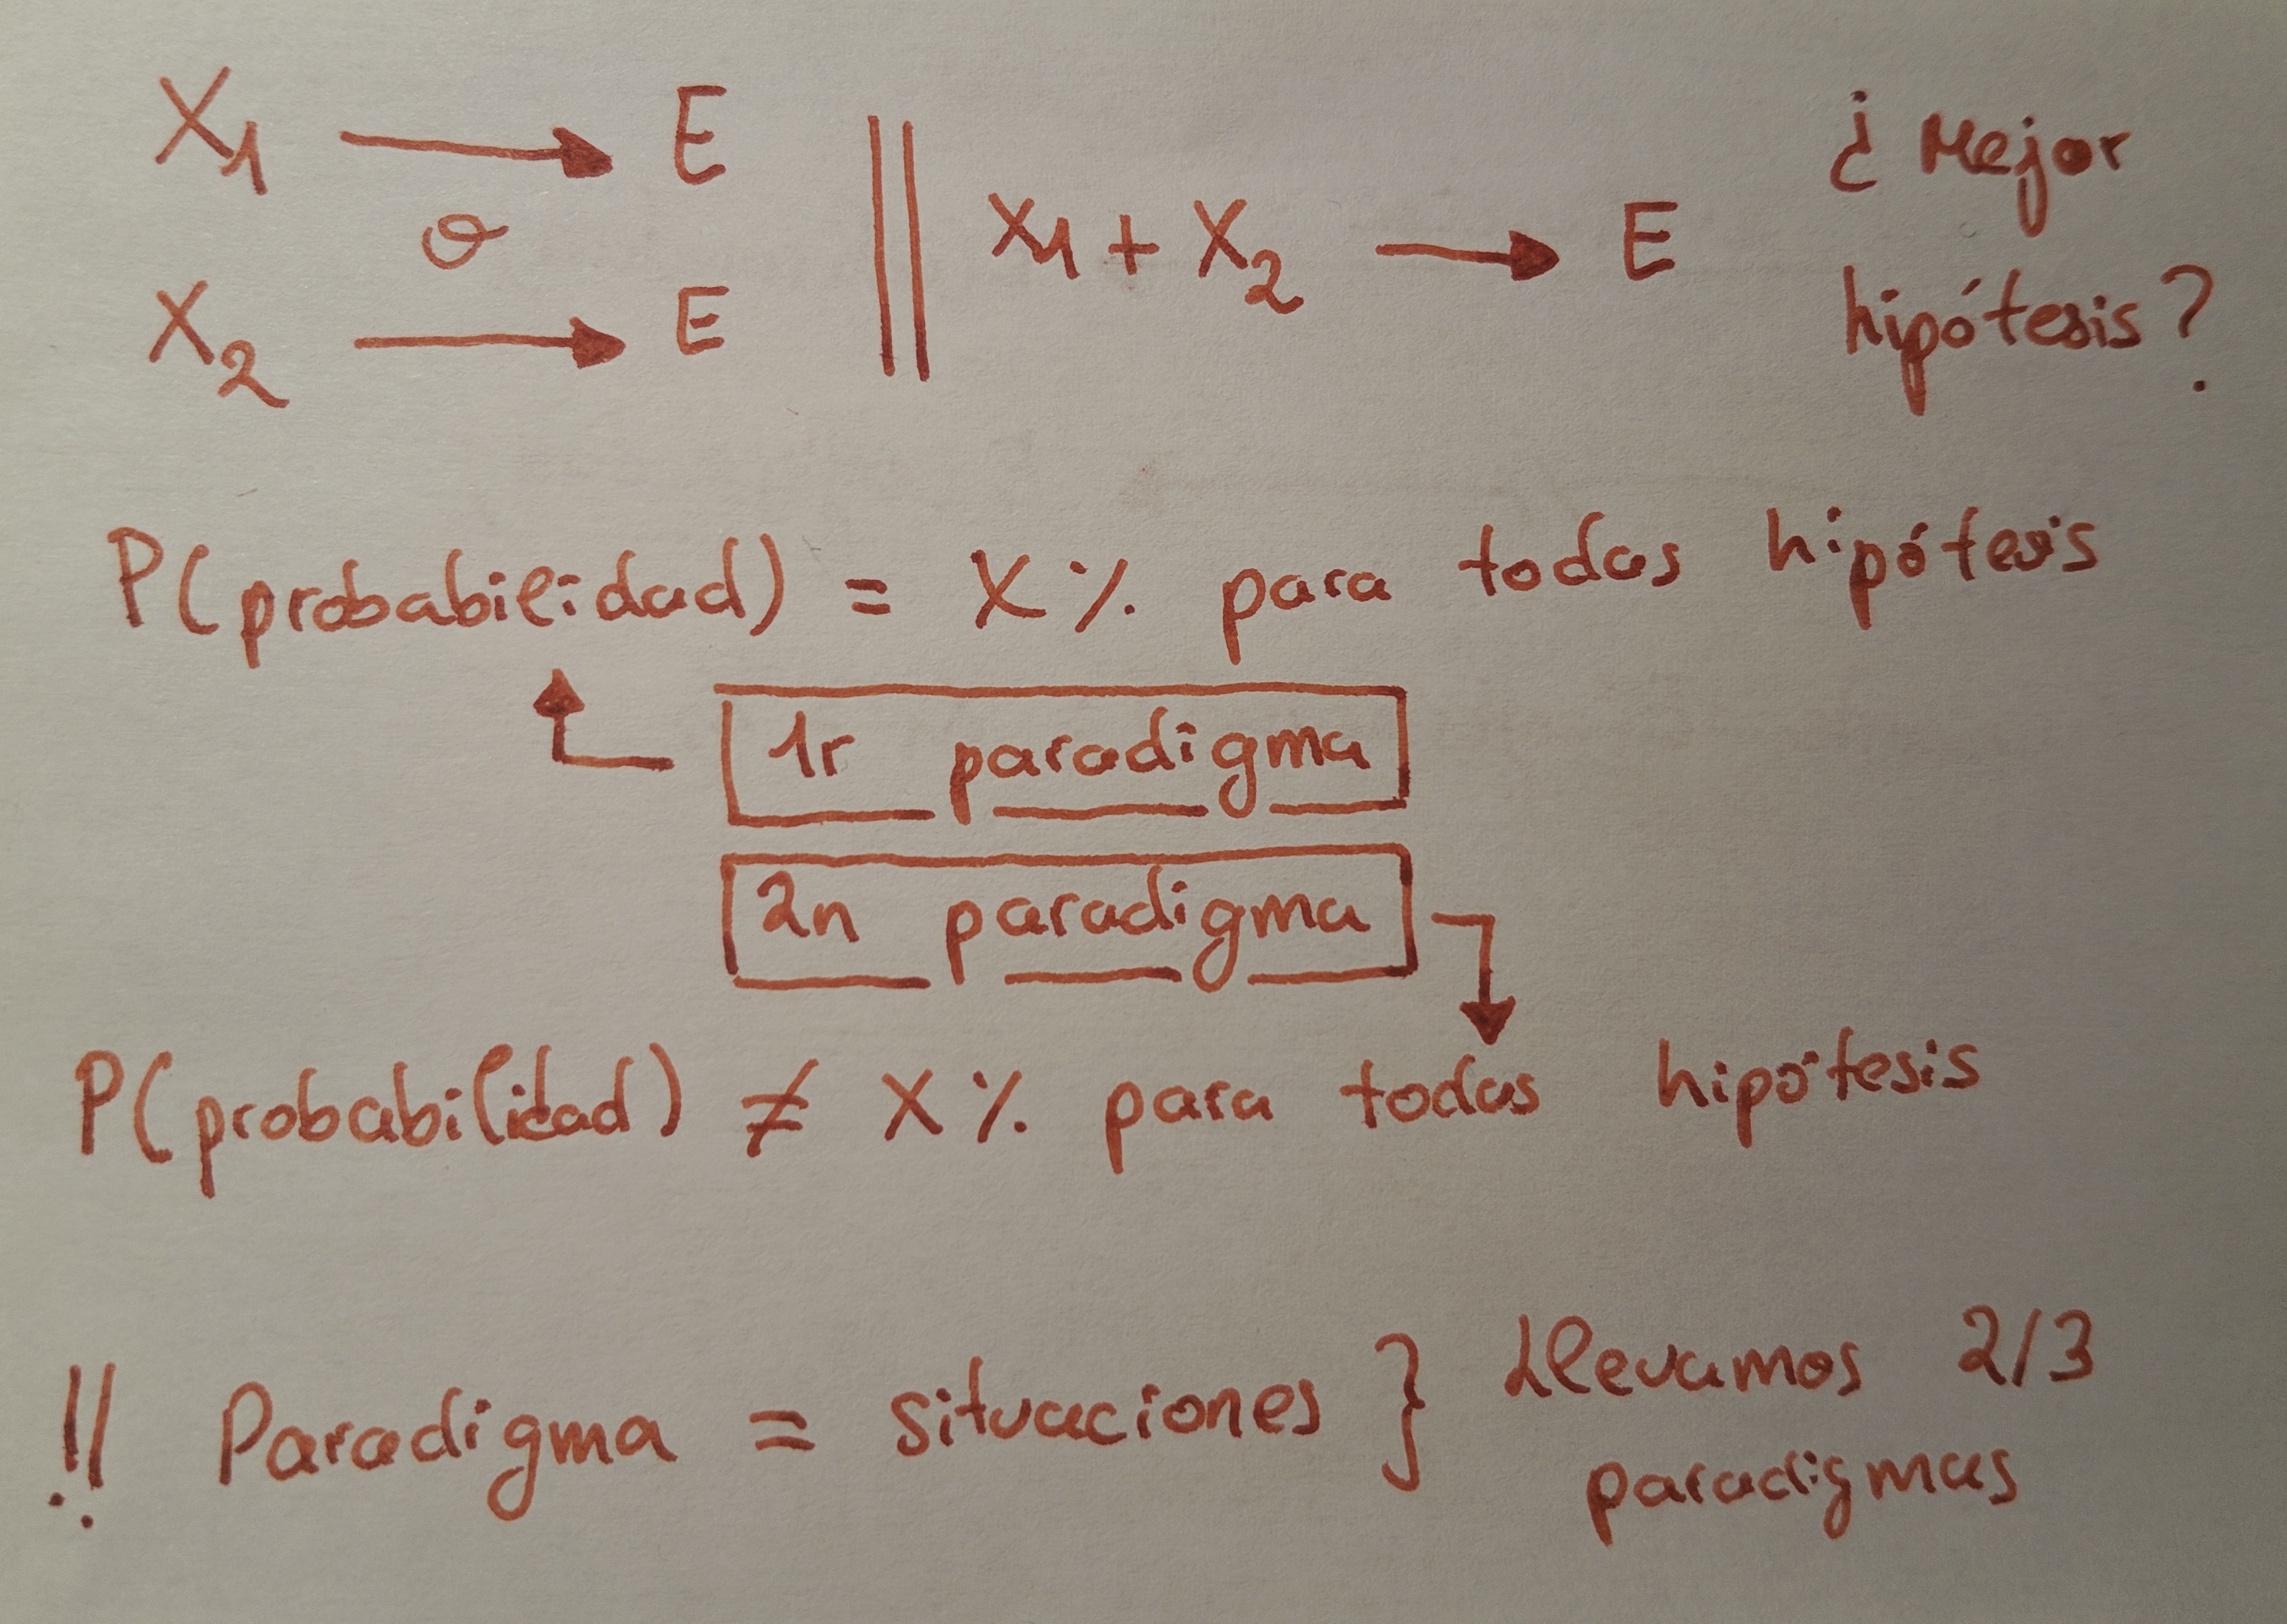 X₁ → E
o
X₂ → E
||
X₁ + X₂ → E
¿Mejor
hipótesis?
P(probabilidad) = X% para todas hipótesis
1r paradigma
2n paradigma
P(probabilidad) ≠ X% para todas hipótesis
!! Paradigma = situaciones } Llevamos 2/3
paradigmas